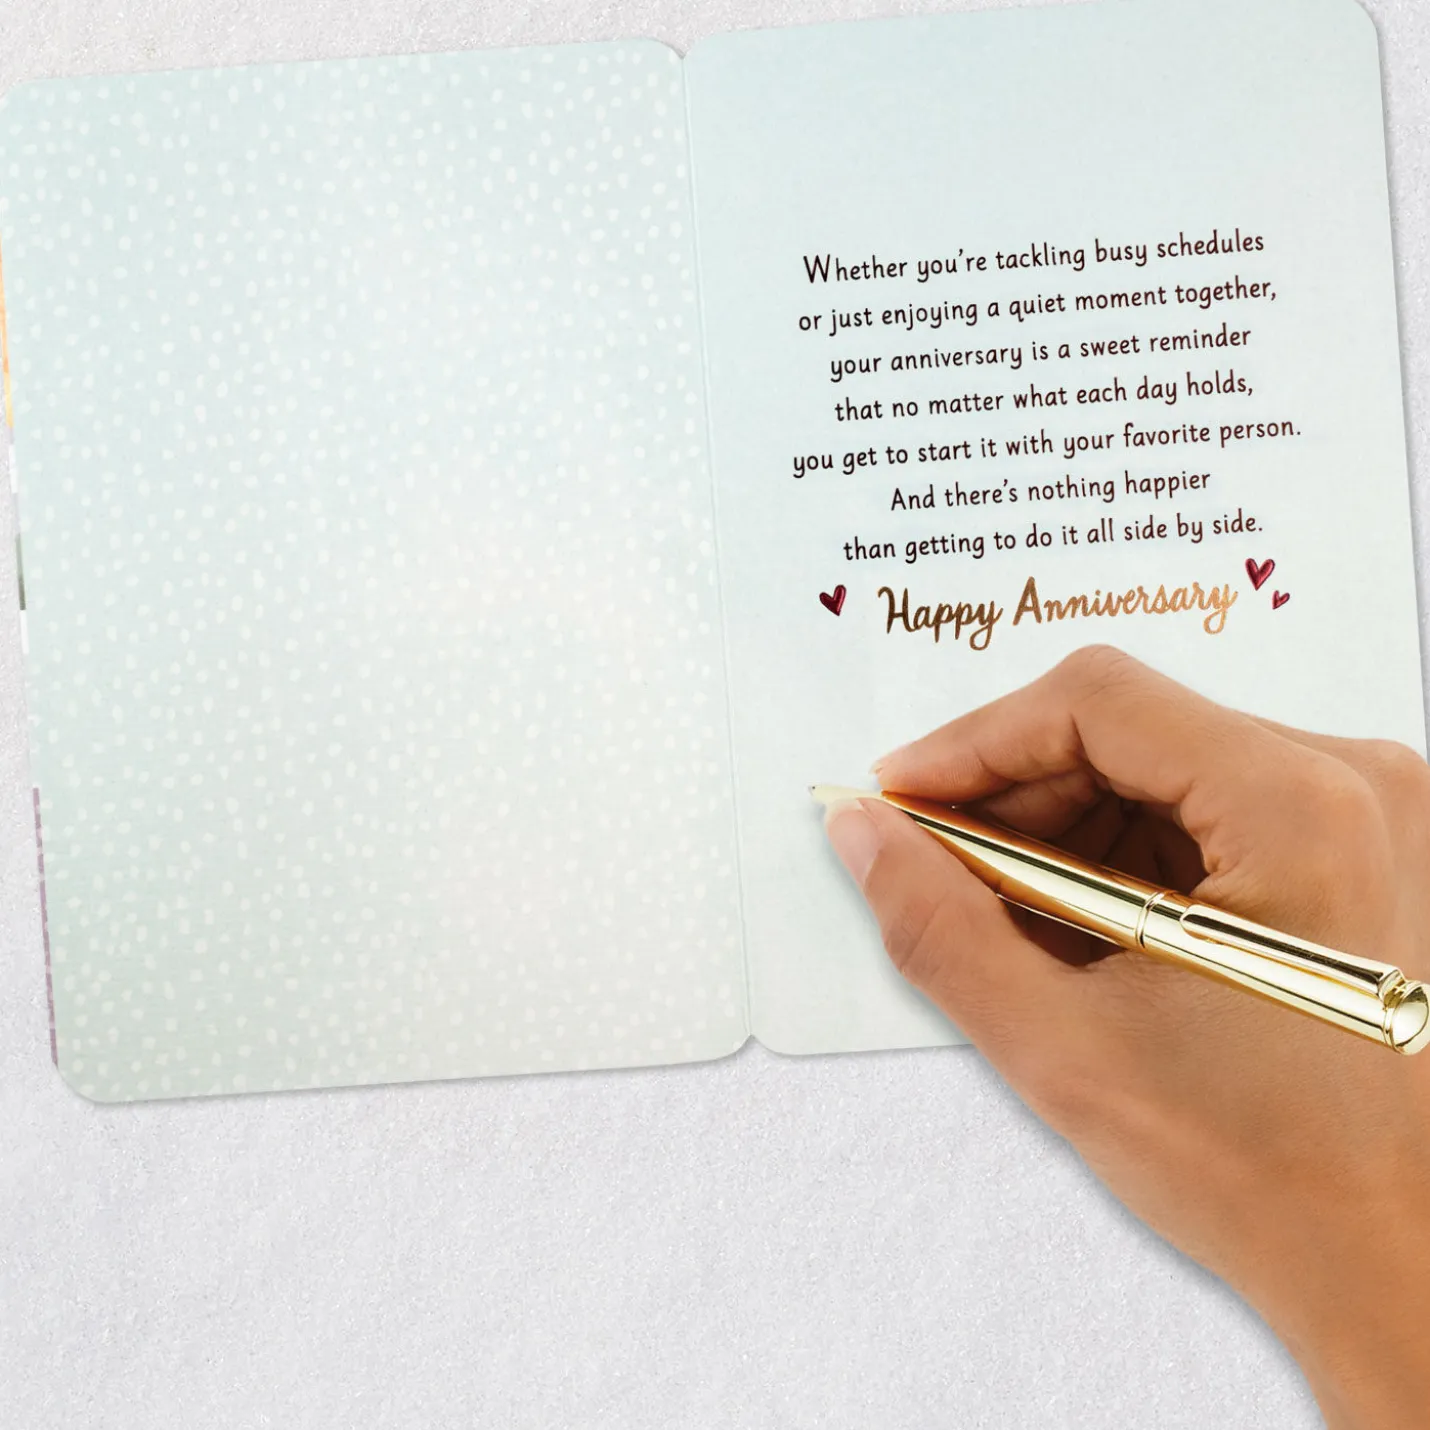 Whether you're tackling busy schedules
or just enjoying a quiet moment together,
your anniversary is a sweet reminder
that no matter what each day holds,
you get to start it with your favorite person.
And there's nothing happier
than getting to do it all side by side.
Happy Anniversary